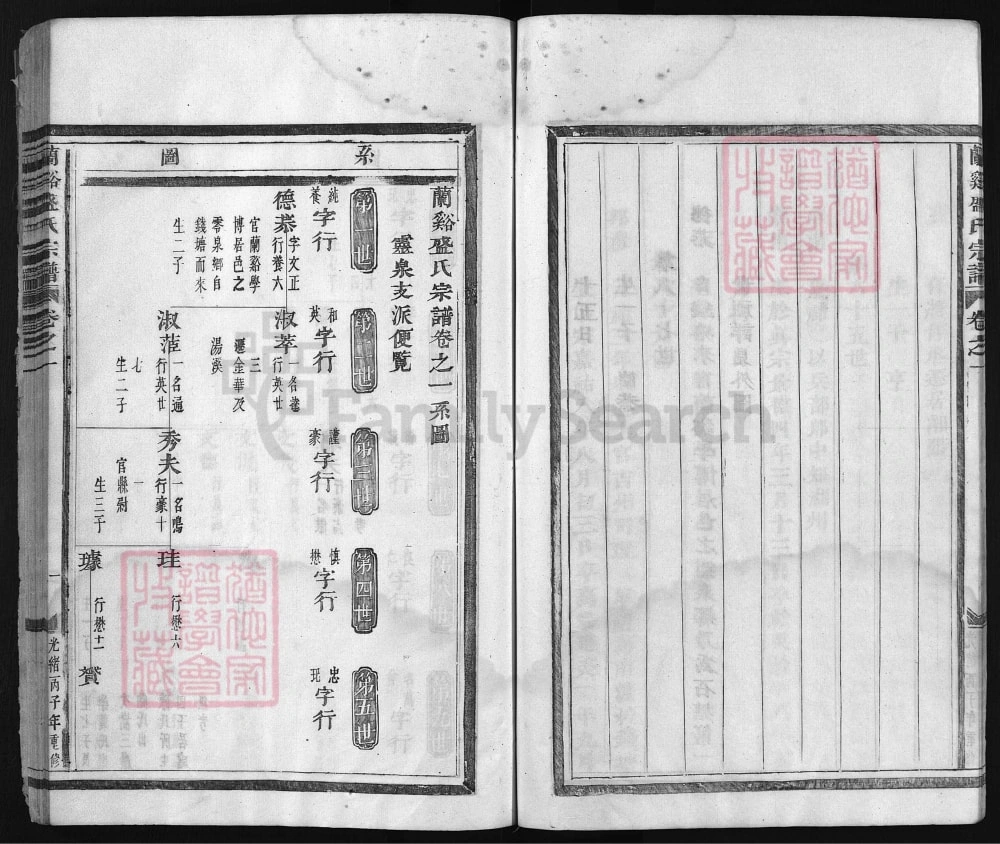 蘭谿盛氏宗譜 卷之一
蘭谿盛氏宗譜卷之一系圖
靈泉支派便覽
系圖
第一世
第二世
第三世
第四世
第五世
純養字行
和英字行
謹豪字行
慎懋字行
忠玘字行
德恭 字文正
行養六
官蘭谿學
博居邑之
零泉鄉自
錢塘而來
生二子
淑萃
行英廿
三
遷金華及
湯溪
淑萡 一名遍
行英廿
七
生二子
秀夫 一名鳴
行豪十
一
官縣尉
生三子
珪 行懋六
璩 行懋十一
贇
蘭谿盛氏宗譜 卷之一
一
光緒丙子年重修
猶他家譜學會收藏
猶他家譜學會收藏
FamilySearch